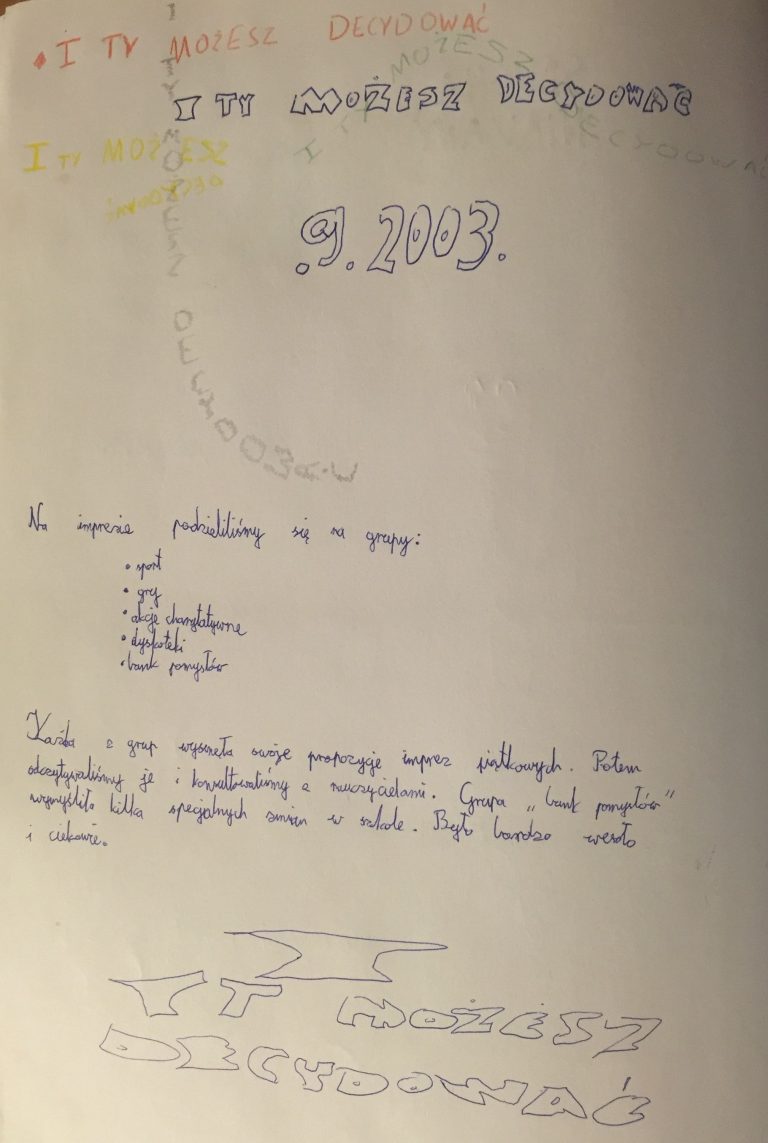 • I TY MOŻESZ DECYDOWAĆ
I TY MOŻESZ DECYDOWAĆ
I TY MOŻESZ DECYDOWAĆ
I TY MOŻESZ
DECYDOWAĆ
.9.2003.
I TY MOŻESZ DECYDOWAĆ
Na imprezie podzieliliśmy się na grupy:
• sport
• gry
• akcje charytatywne
• dyskoteki
• bank pomysłów
Każda z grup wysunęła swoje propozycje imprez piątkowych. Potem
odczytywaliśmy je i konsultowaliśmy z nauczycielami. Grupa „bank pomysłów"
wymyśliła kilka specjalnych zmian w szkole. Było bardzo wesoło
i ciekawie.
I
TY MOŻESZ
DECYDOWAĆ